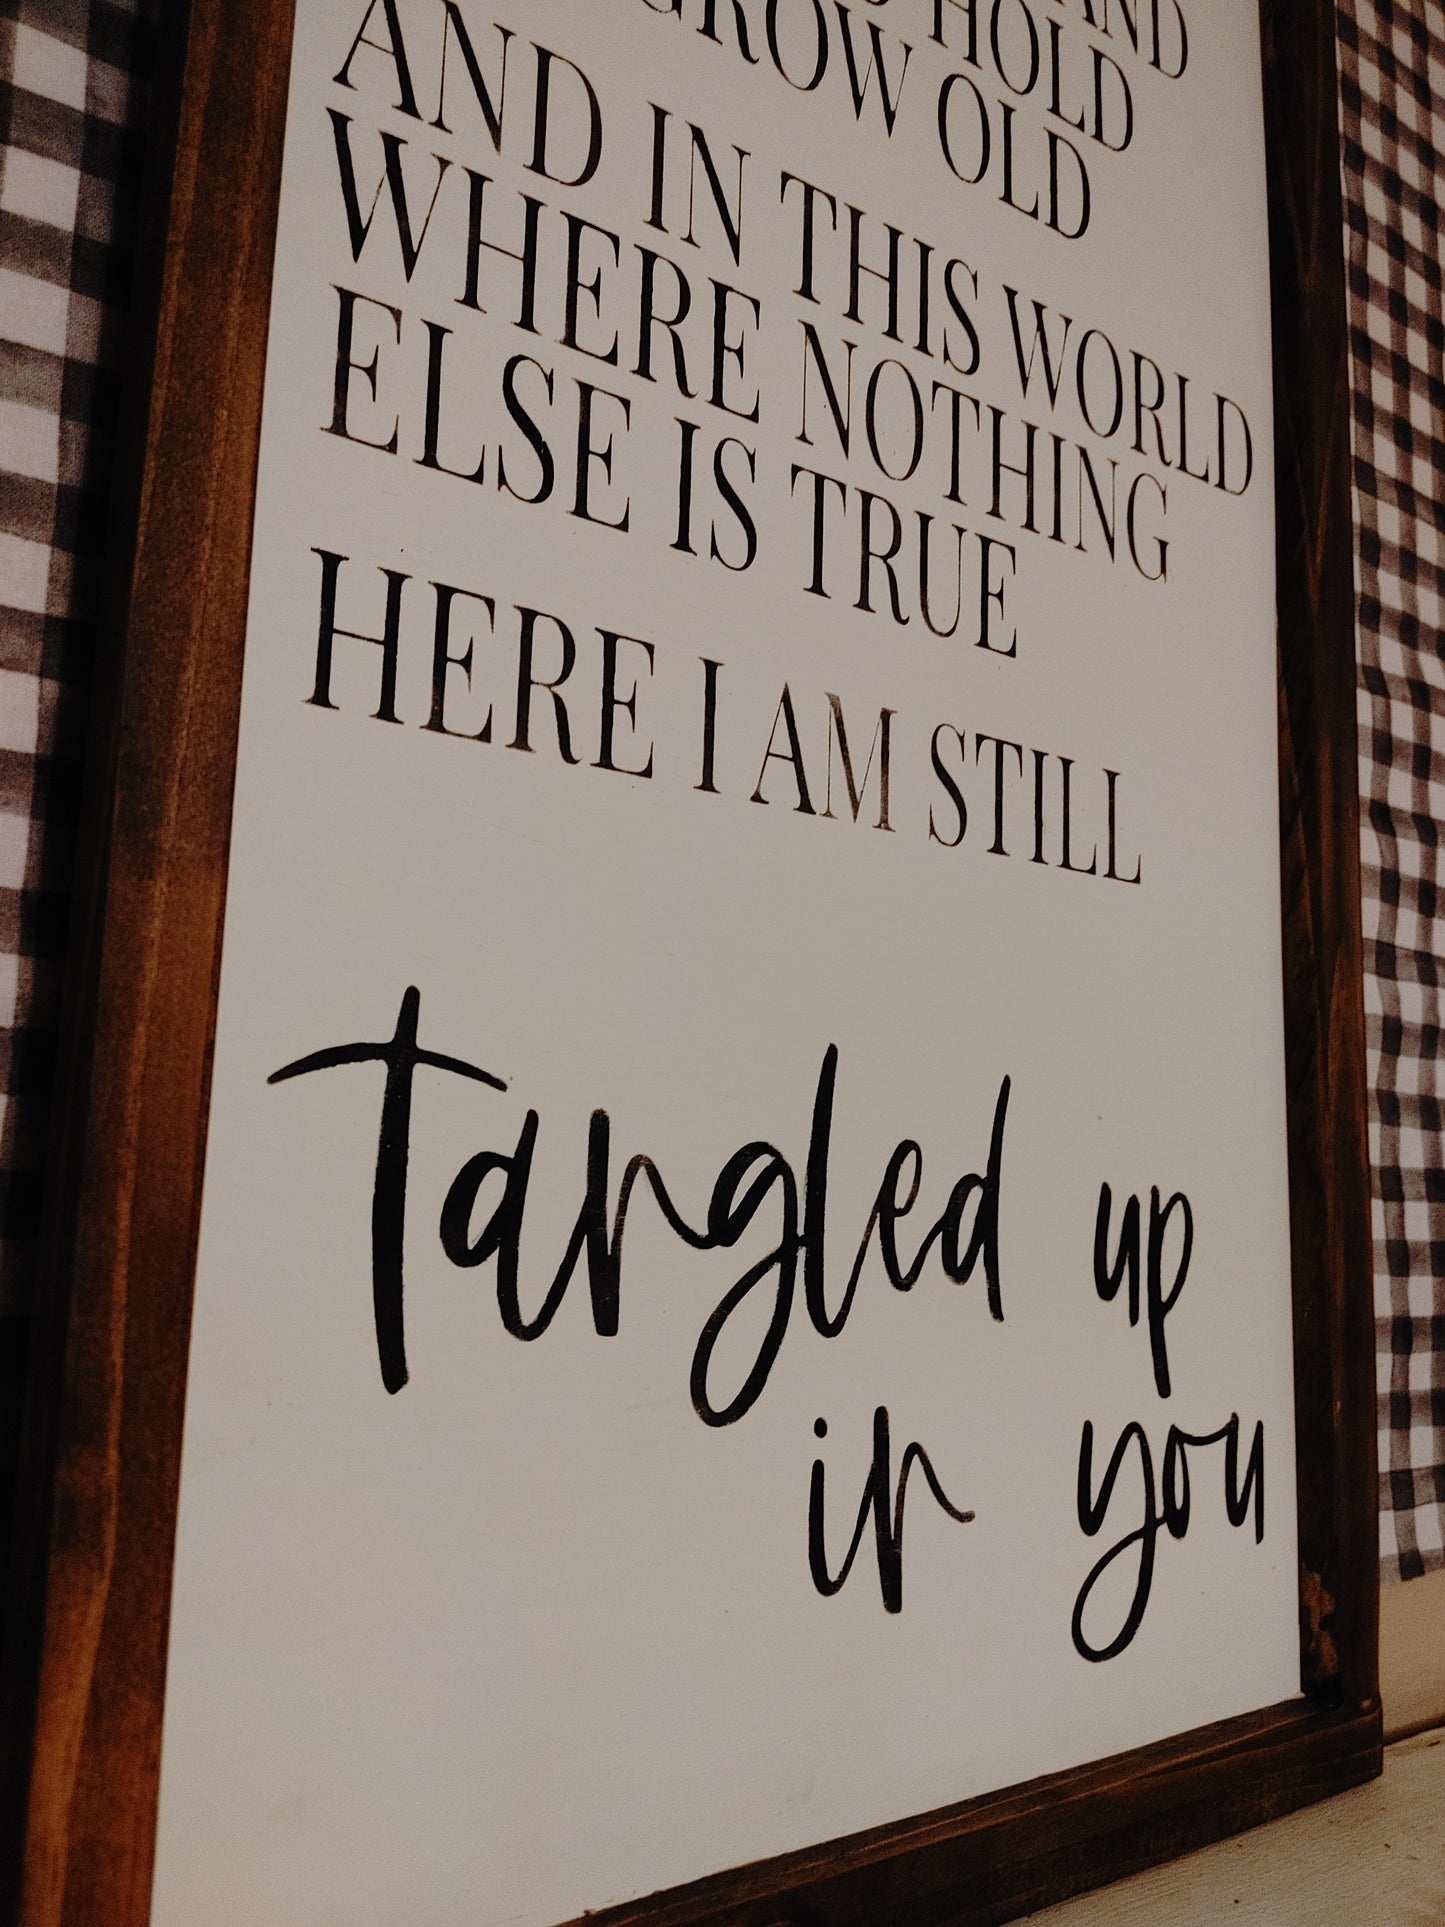 HOLD
GROW OLD
AND IN THIS WORLD
WHERE NOTHING
ELSE IS TRUE
HERE I AM STILL
tangled up
in you